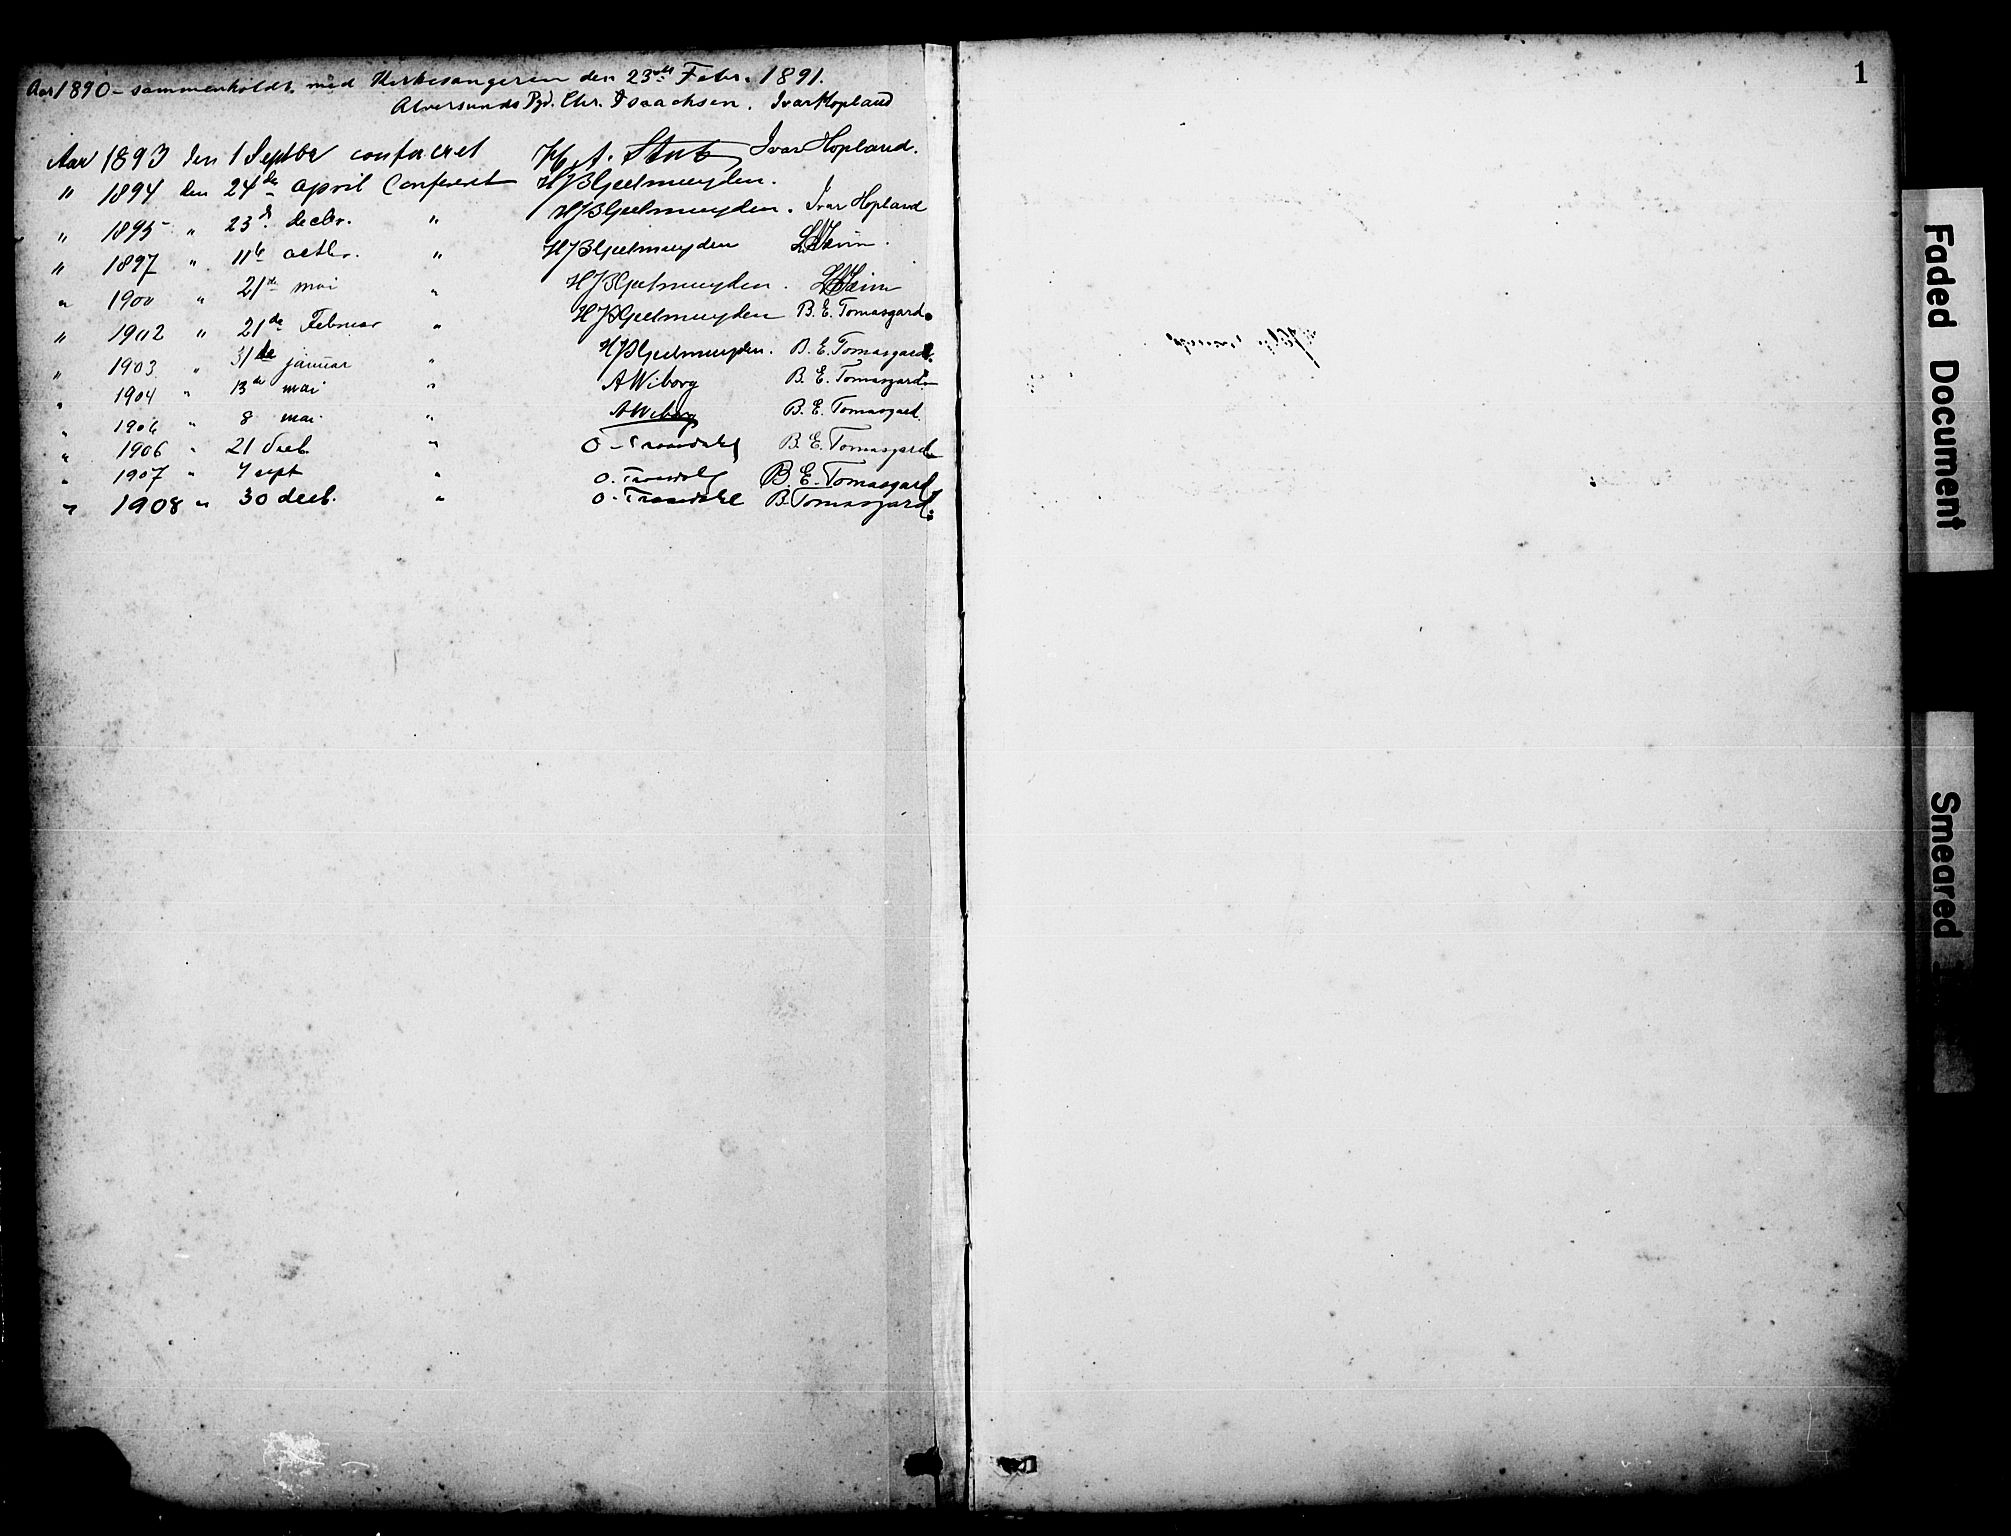 Aar 1890 - sammenholdt med Kirkesangeren den 23de Febr. 1891.
Alversunds Pgd. Chr. Isaachsen. Ivar Hopland
Aar 1893 den 1 Septbr confereret H. A. Stub Ivar Hopland.
" 1894 den 24de april Confereret HJBGjelmuyden.
" 1895 " 23d. decbr. " HJBGjelmuyden. Ivar Hopland
" 1897 " 11te octbr. " HJBGjelmuyden
" 1900 " 21de mai " HJBGjelmuyden.
" 1902 " 21de Februar " HJBGjelmuyden B. E. Tomasgard.
" 1903 " 31te januar " HJBGjelmuyden. B. E. Tomasgard.
" 1904 " 13de mai " AWiborg B. E. Tomasgard
" " 8 mai " AWiborg B. E. Tomasgard
" 1906 " 21 decb. " B. E. Tomasgard
" 1907 " 7 sept " B. E. Tomasgard
" 1908 " 30 decb. " B. Tomasgard.
1
Faded Document
Smeared